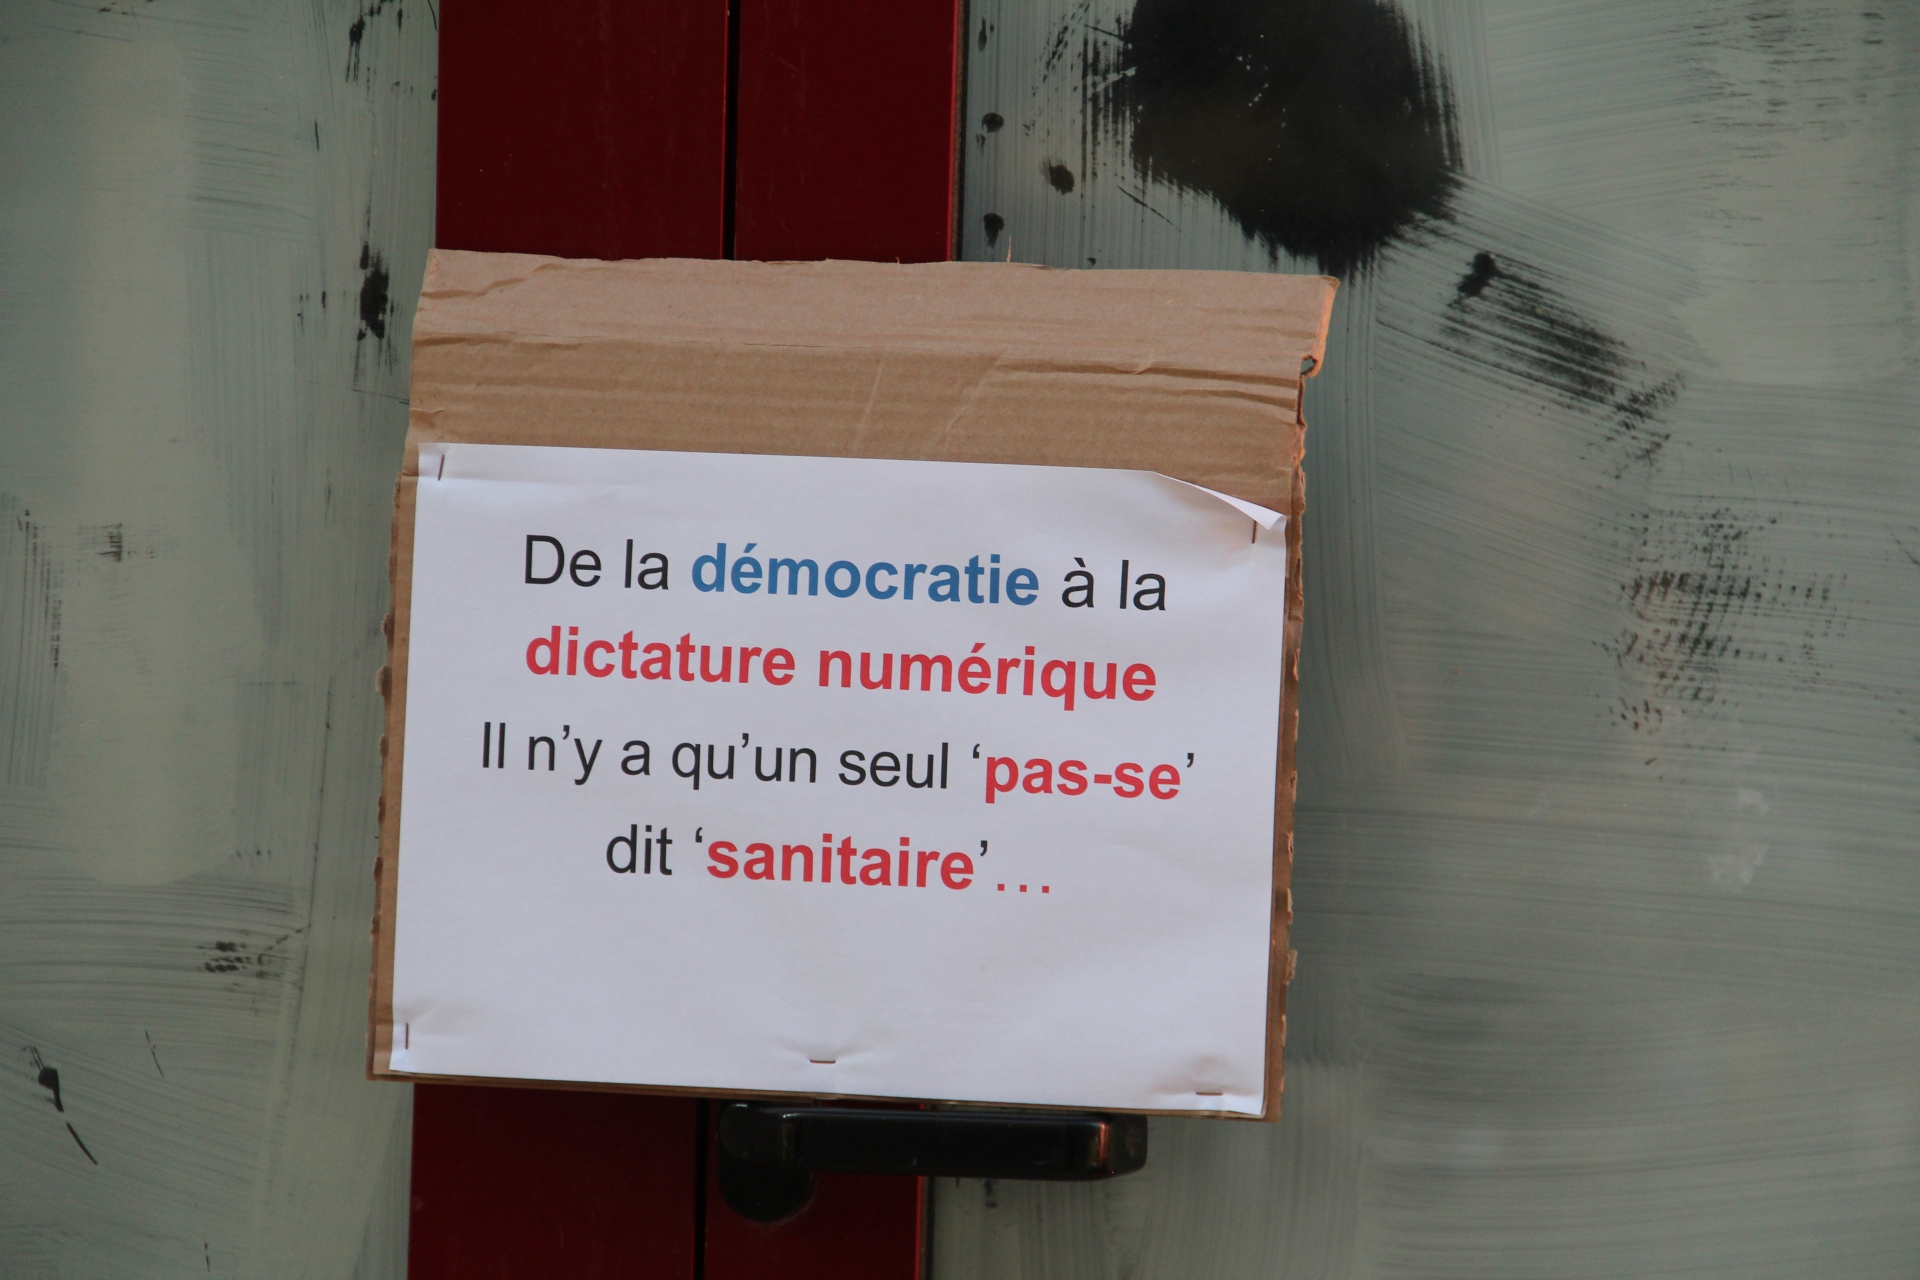 De la démocratie à la
dictature numérique
Il n’y a qu’un seul ‘pas-se’
dit ‘sanitaire’…